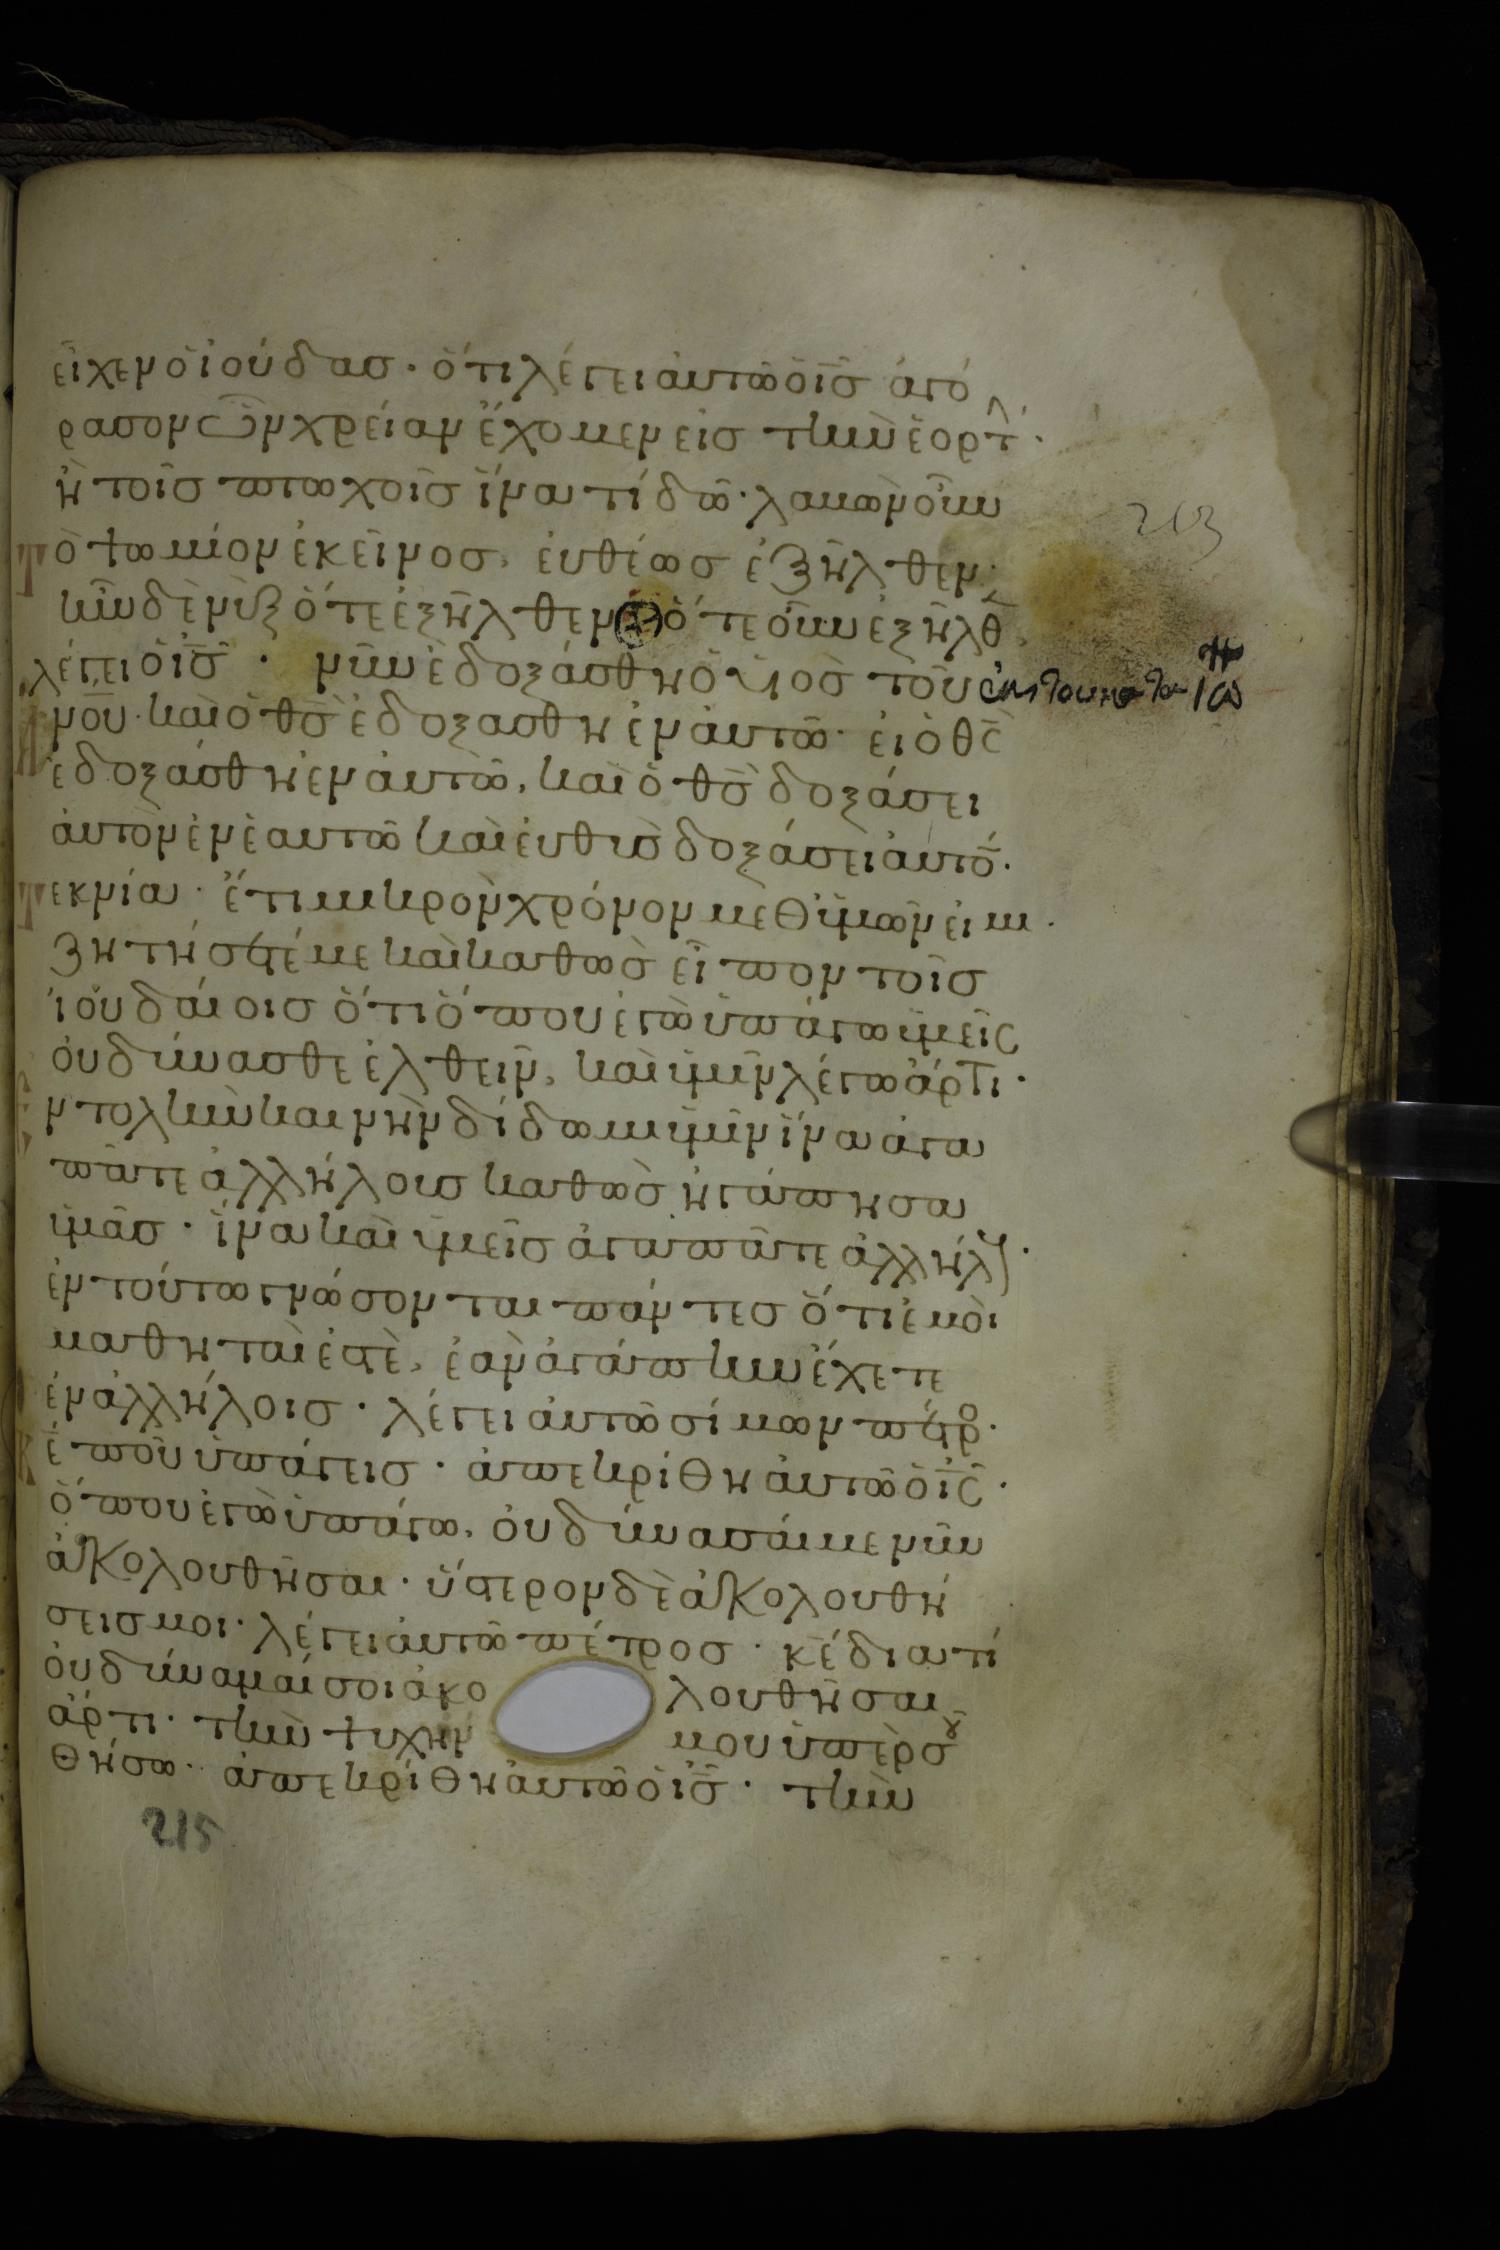 εἶχεν ὁ ἰούδασ· ὅτι λέγει ἀυτῶ ὁ ἰς̅ ἀγό
ρασον ὧν χρείαν ἔχομεν εἰσ τὴν ἑορτ·
ἢ τοῖσ πτωχοῖσ ἵνα τί δῶ· λαβὼν οὖν
Τὸ ψωμίον ἐκεῖνοσ, ἐυθέωσ ἐξῆλθεν·
ἦν δὲ νὺξ ὅτε ἐξῆλθεν ὅτε οὖν ἐξῆλθ
λέγει ὁ ἰς̅· νῦν ἐδοξάσθη ὁ ὑιὸσ τοῦ
α̅ν̅ου̅· καὶ ὁ θς̅ ἐδοξασθη ἐν ἀυτῶ· εἰ ὁ θς̅
ἐδοξάσθη ἐν ἀυτῶ, καὶ ὁ θς̅ δοξάσει
ἀυτὸν ἐν ἑαυτῶ καὶ ἐυθὺσ δοξάσει ἀυτό·
Τεκνία· ἔτι μικρὸν χρόνον μεθ ὑμῶν εἰμι·
ζητήσετέ με καὶ καθὼσ εἶπον τοῖσ
ἰουδάιοισ ὅτι ὅπου ἐγὼ ὑπάγω ὑμεῖς
ὀυ δύνασθε ἐλθεῖν, καὶ ὑμῖν λέγω ἄρτι·
ἐντολὴν καινὴν δίδωμι ὑμῖν ἵνα ἀγα
πᾶτε ἀλλήλουσ καθὼσ ἠγάπησα
ὑμᾶσ· ἵνα καὶ ὑμεῖσ ἀγαπᾶτε ἀλλήλ·
ἐν τούτω γνώσονται πάντεσ ὅτι ἐμοὶ
μαθηταὶ ἐστὲ, ἐὰν ἀγάπην ἔχετε
ἐν ἀλλήλοισ· λέγει ἀυτῶ σίμων πέτρο·
Κέ ποῦ ὑπάγεισ· ἀπεκρίθη ἀυτῶ ὁ ἰς̅·
ὅπου ἐγὼ ὑπάγω, ὀυ δύνασάι με νῦν
ἀκολουθῆσαι· ὕστερον δὲ ἀκολουθή
σεισ μοι· λέγει ἀυτῶ πέτροσ· κέ διατί
ὀυ δύναμαί σοι ἀκο λουθῆσαι
ἄρτι· τὴν ψυχήν μου ὑπὲρ σȣ
θήσω· ἀπεκρίθη ἀυτῶ ὁ ἰς̅· τὴν
213
215